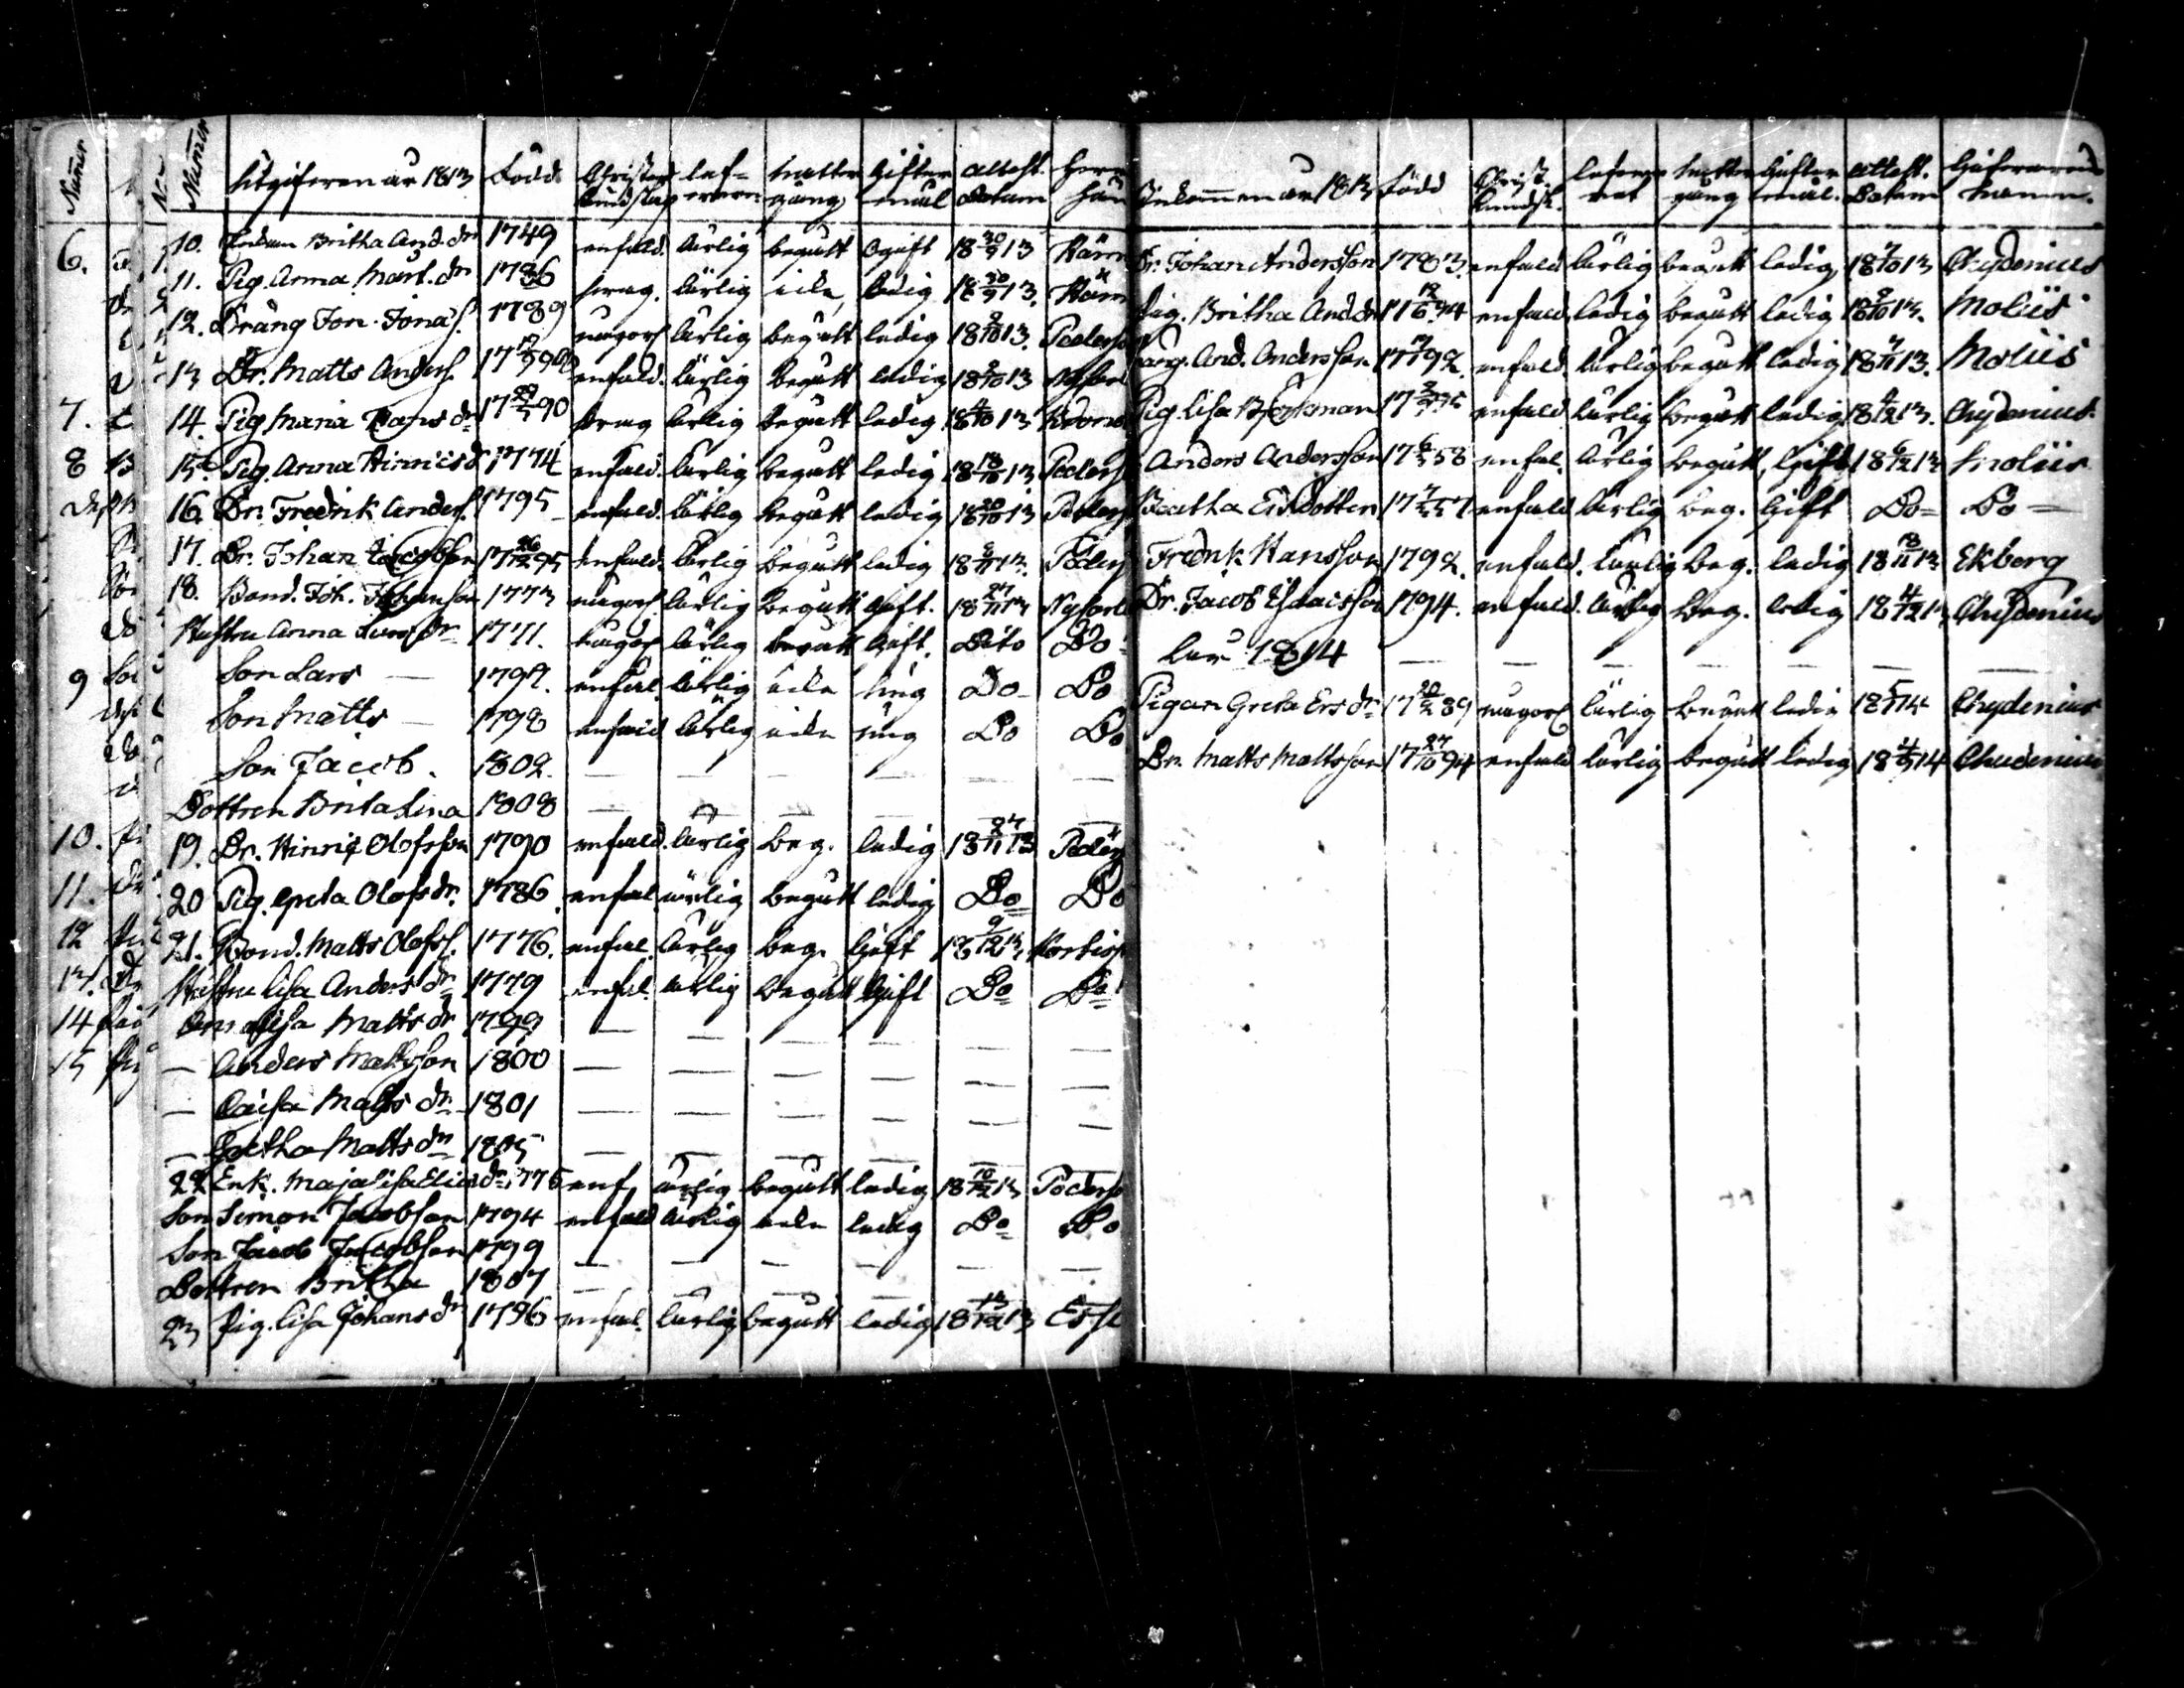 Numer
Numer
Utgifven år 1813 Född Christend. kundskap lef- erne natter gång Gifter mål Attest. Datum
6.
10. Enkan Britha And. dr 1749 enfald. ärlig begått Ogift 18 30/9 13
11. Pig. Anna Mart. dr 1786 svag. ärlig icke ledig 18 30/9 13.
12. Dräng Jon. Jonas. 1789 någorl ärlig begått ledig 18 8/10 13.
13 Dr. Matts Anders. enfald. ärlig begått ledig 18 8/10 13
7.
14. Pig Maria Hans dr 17 90 svag ärlig begått ledig 18 4/10 13
8
15. Pig. Anna Hinrics d 1774 enfald. ärlig begått ledig 18 18/10 13
16. Dr. Fredrik Anders. 1795 enfald. ärlig begått ledig 18 20/10 13
17. Dr. Johan Jacobson 17 26/12 95 enfald. ärlig begått ledig 18 13.
18. Bond. Joh. Johanson 1773 någorl ärlig begått Gift. 18 27/11 13
Hustru Anna Lars dr 1771. någorl ärlig begått Gift. Dito Do
9
Son Lars — 1797. enfal ärlig icke ung Do Do
Son Matts — 1798 enfald ärlig icke ung Do Do
Son Jacob. 1802. — — — — — —
Dottren Brita Lena 1808 — — — — —
10.
19. Dr. Hinrig Olofsson 1790 enfald. ärlig beg. ledig 18 27/11 13
11.
20 Pig. Greta Olofs dr. 1786. enfal. ärlig begått ledig Do Do
12
21. Bond. Matts Olofs. 1776. enfal. ärlig beg. Gift 18 9/12 13
13.
Hustru Lisa Anders dr 1779 enfal. ärlig begått Gift Do Do
14
Anna Lisa Matts dr 1799 — — — — — —
15
— Anders Mattsson 1800 — — — — — —
— Caisa Matts dr 1801 — — — — — —
— Gretha Matts dr 1805 — — — — — —
22 Enk. Maja Lisa Elias dr 1775 enf ärlig begått ledig 18 10/12 13
Son Simon Jacobson 1794 enfald ärlig icke ledig Do Do
Son Jacob Jacobson 1799 — — — — — —
Dottren Britha 1807 — — — —
23 Pig. Lisa Johans dr 1796 enfal. ärlig begått ledig 18 13/12 13
Inkommen år 1813 Född Christ. kundsk. lefver net natter gång Gifter mål. Attest. Datum Gifvarens namn.
Dr. Johan Andersson 1783. enfald ärlig begått ledig 18 7/10 13 Chydenius
Pig. Britha And dr 17 12/6 94 enfald. ledig begått ledig 18 8/10 13. Moliis
And. Andersson 17 92. enfald. ärlig begått ledig 18 7/11 13. Moliis
Pig. Lisa Björkman enfald ärlig begått ledig 18 4/12 13. Chydenius
Anders Andersson 17 58 enfal. ärlig begått, Gift 18 6/12 13 Moliis
Beatha Ersdotter 17 57 enfald ärlig beg. Gift Do Do —
Fredrik Hansson 1792. enfald. ärlig beg. ledig 18 18/11 13 Ekberg
Dr. Jacob Esaiasson 1794. enfald. ärlig beg. ledig 18 4/12 13 Chydenius
1814 — — — — — — —
Pigan Greta Ers dr 17 20/2 89 någorl ärlig begått ledig 18 14 Chydenius
Dr. Matts Mattsson 17 27/10 94 enfald ärlig begått ledig 18 14 Chydenius